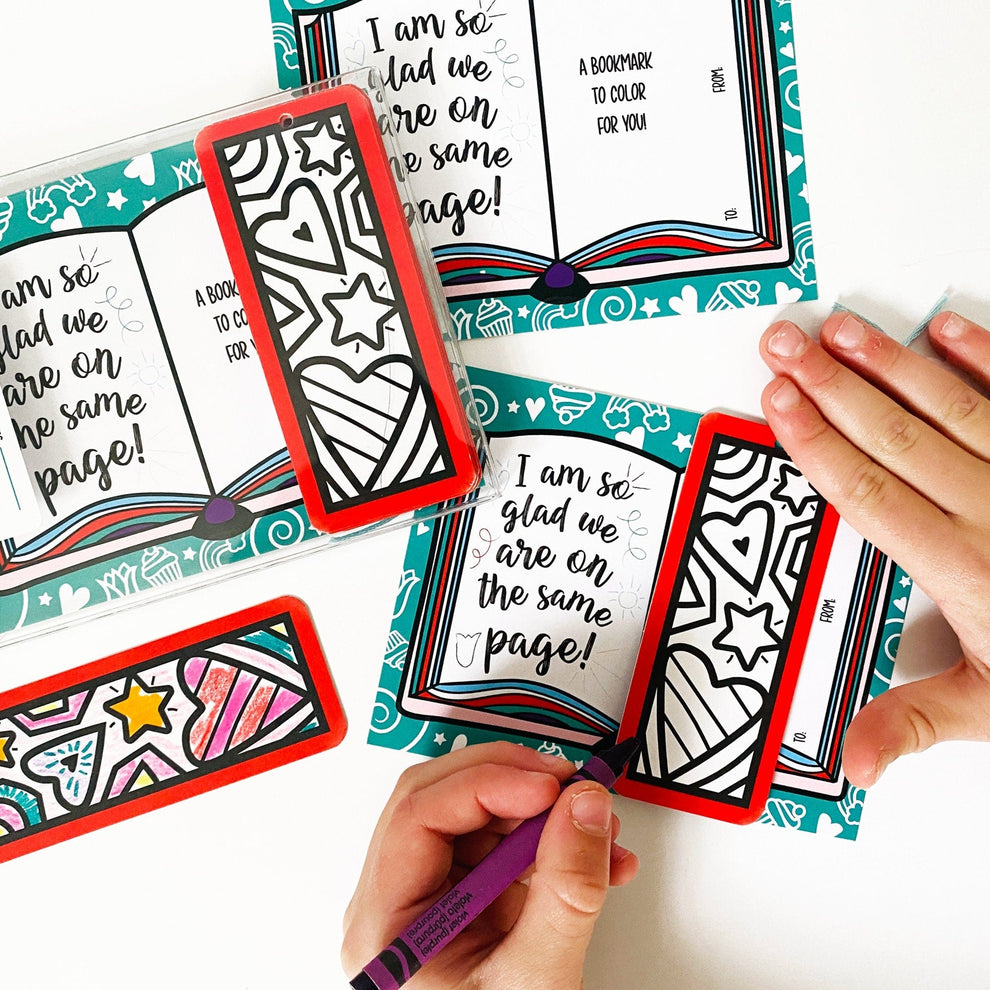 I am so
glad we
are on
the same
page!
A BOOKMARK
TO COLOR
FOR YOU!
FROM:
TO:
I am so
glad we
are on
the same
page!
A BOOK
TO CO
FOR
I am so
glad we
are on
the same
page!
FROM:
TO:
violet (purple)
violeta (púrpura)
violet (pourpre)